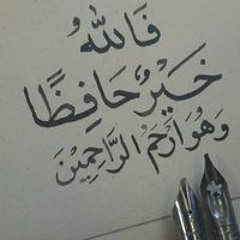 فَاللهُ
خَيْرٌ حَافِظًا
وَهُوَ أَرْحَمُ الرَّاحِمِيْنَ